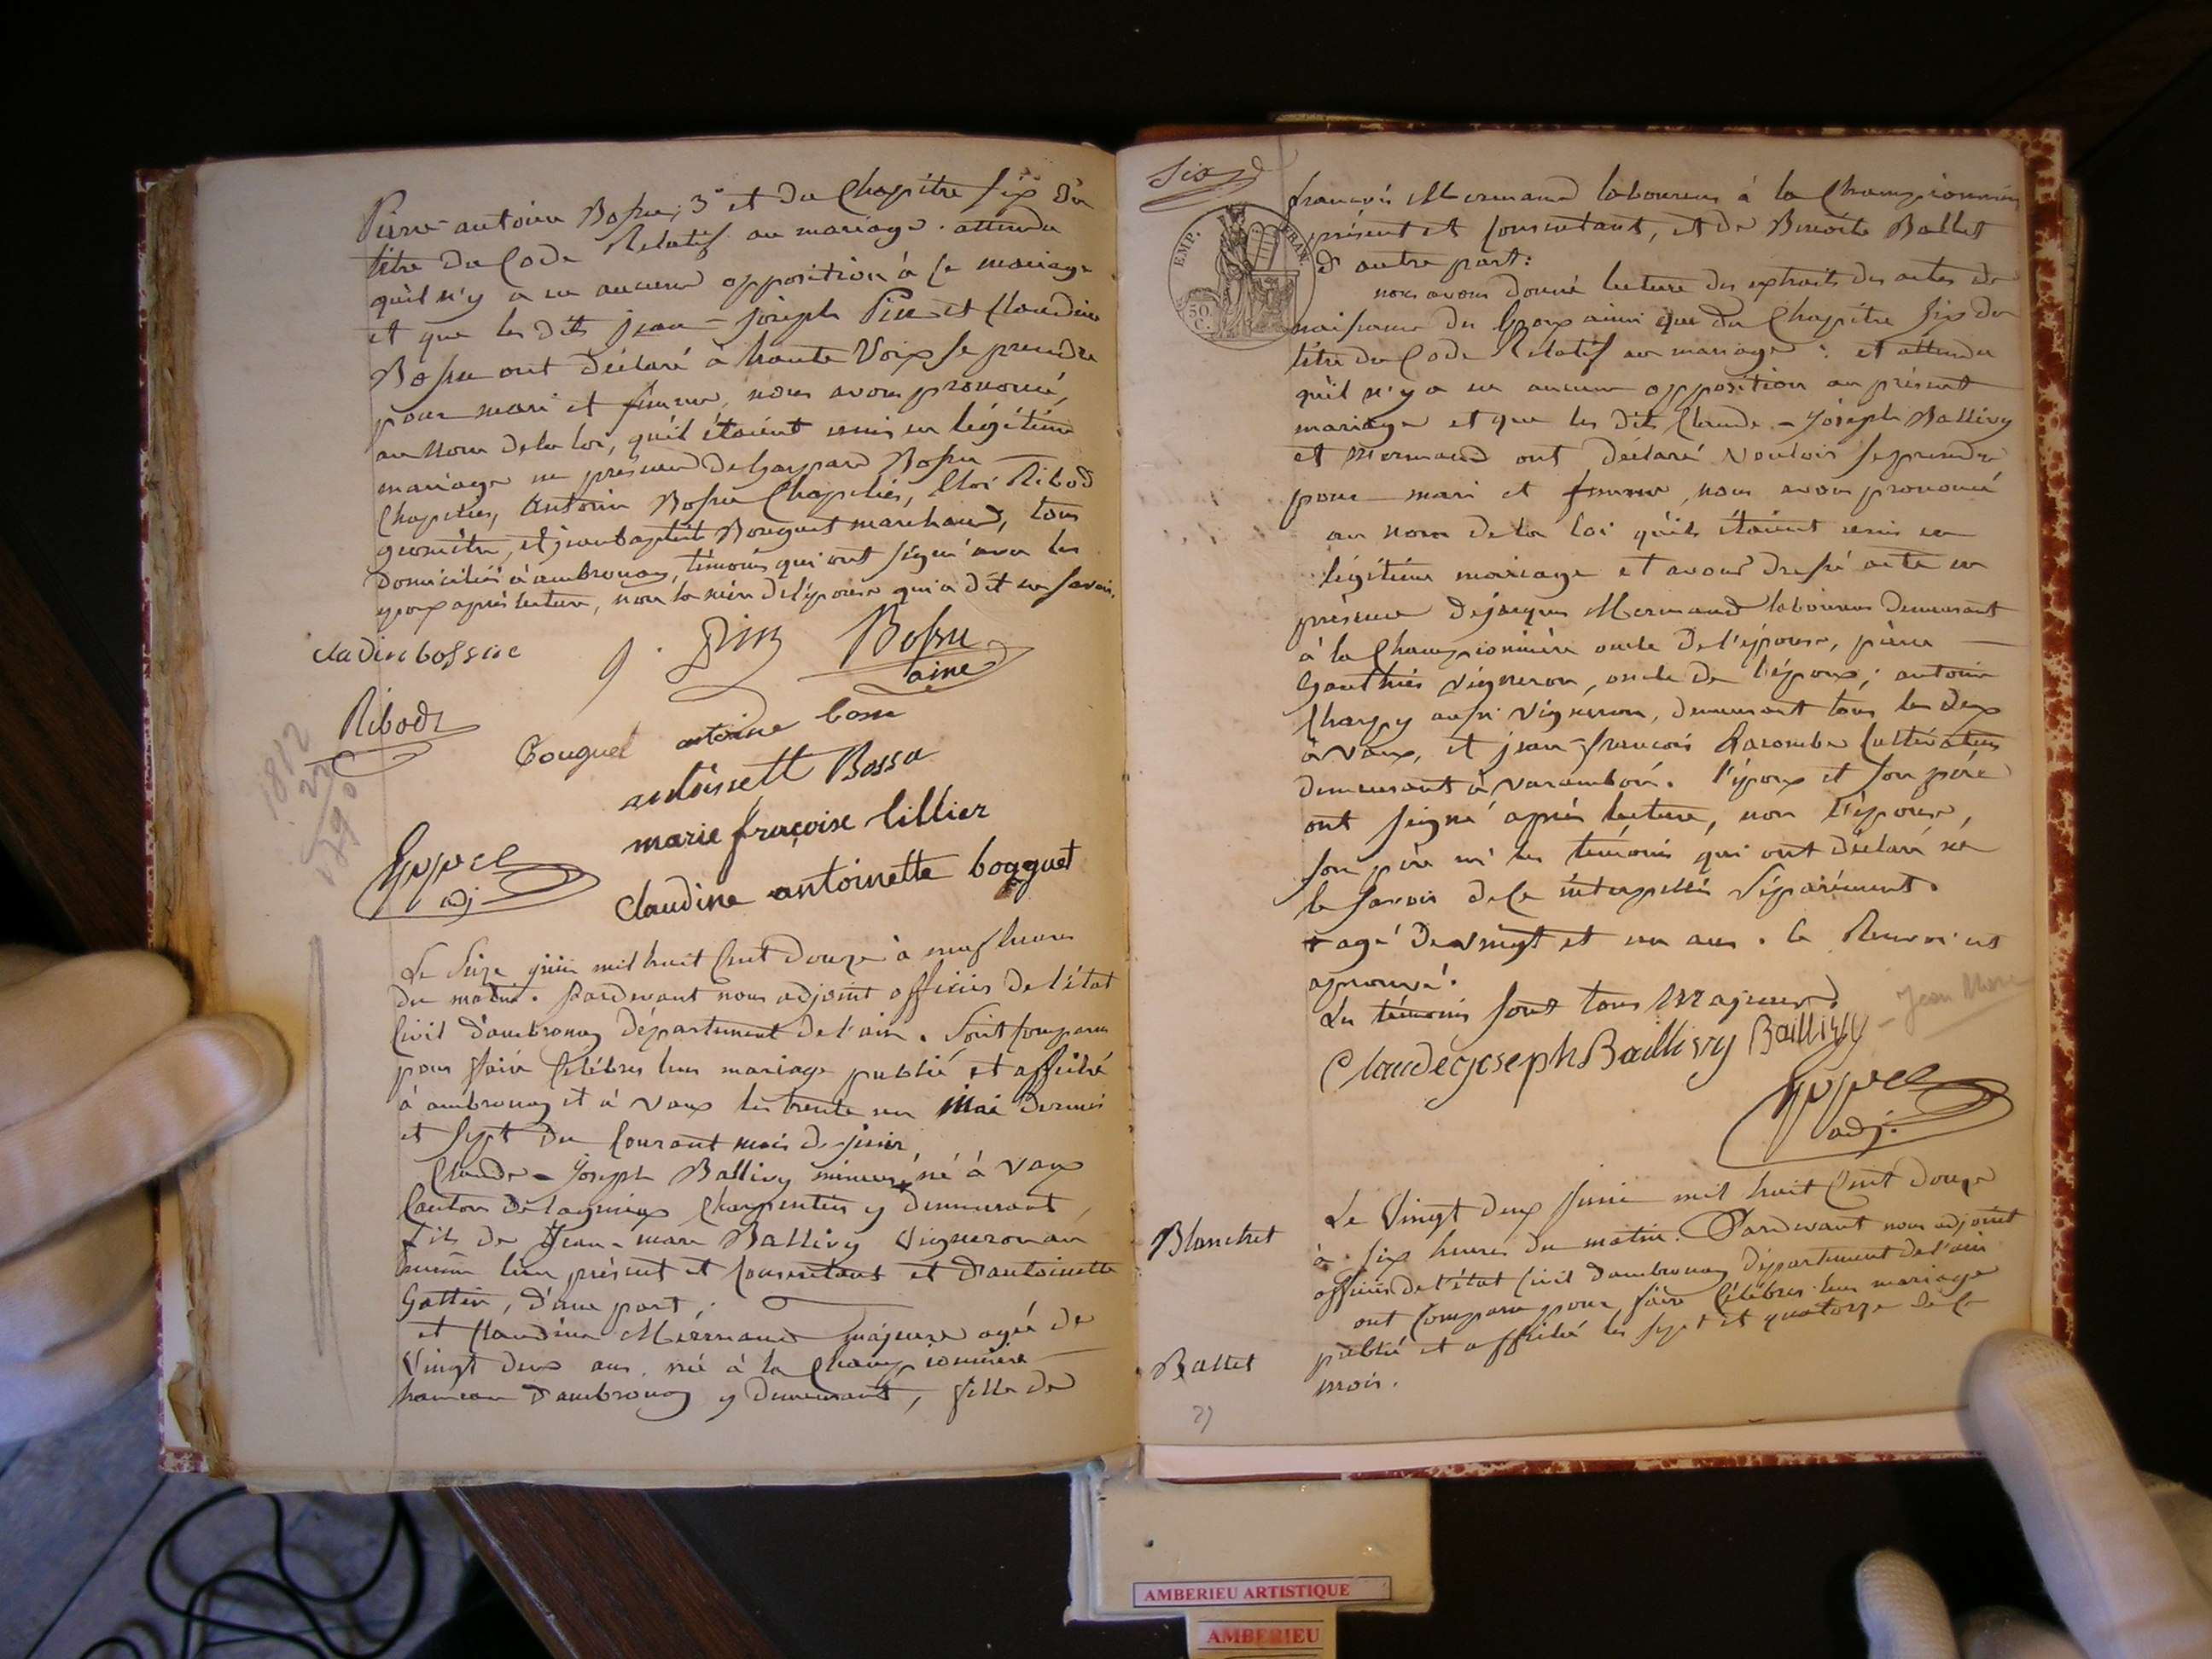 Pierre-antoine Bossu, 3° et du Chapitre six du
titre du Code Relatif au mariage. attendu
qu'il n'y a eu aucune opposition à ce mariage
et que les dits jean-joseph et Claudine
Bossu ont déclaré à haute voix se prendre
pour mari et femme, nous avons prononcé,
au nom de la loi, qu'il étaient unis en légitime
mariage en présence de Gaspard Bossu
Chapelier, Antoine Bossu Chapelier, Ribod
géomètre, et jean baptiste Bouguet marchand, tous
domiciliés à ambronay, témoins qui ont signé avec les
époux après lecture, non la mère de l'épouse qui a dit ne savoir.
cladine bossue
j. Bossu
ainé
Ribod
Bouguet antoine bossu
antoinett Bossu
marie fraçoise tillier
claudine antoinette bogguet
adj
1812
22
1790
Le seize juin mil huit Cent Douze à neuf heures
du matin. Pardevant nous adjoint officier de l'état
Civil d'ambronay département de l'ain. Sont comparus
pour faire Célébrer leur mariage publié et affiché
à ambronay et à vaux les trente un Mai dernier
et sept du Courant mois de juin
Claude-Joseph Ballivy mineur né à vaux
Canton de lagnieux Charpentier y demeurant,
fils de Jean-marie Ballivy vigneron au
même lieu présent et consentant et d'antoinette
, d'une part;
et Claudine Mermand majeure agée de
vingt deux ans, née à la Championnière
hameau d'ambronay y demeurant, fille de
Six
EMP. FRAN.
50 C.
françois Mermand laboureur à la Championnière
présent et consentant, et de Benoite Ballet
d'autre part:
nous avons donné lecture des extraits des actes de
naissance des Epoux ainsi que du Chapitre six du
titre du Code Relatif au mariage: et attendu
qu'il n'y a eu aucune opposition au présent
mariage et que les dits Claude-Joseph Ballivy
et Mermand ont déclaré vouloir se prendre
pour mari et femme, nous avons prononcé
au nom de la loi qu'ils étaient unis en
légitime mariage et avons dressé acte en
présence de jacques Mermand laboureur demeurant
à la Championnière oncle de l'épouse, pierre
Gauthier vigneron, oncle de l'époux; antoine
Charpy aussi vigneron, demeurant tous les deux
à vaux, et jean-françois Lacombe Cultivateur
demeurant à varambon. l'époux et son père
ont signé après lecture, non l'épouse,
son père ni les témoins qui ont déclaré ne
le savoir de ce interpellés séparément.
+ agé de vingt et un ans. le Renvoi est
approuvé.
Les témoins sont tous Majeurs
Claude joseph Baillivy Baillivy - Jean Marie
adj.
Blanchet
Ballet
Le Vingt deux Juin mil huit Cent douze
à six heures du matin. Pardevant nous adjoint
officier de l'état Civil d'ambronay département de l'ain
ont Comparu pour faire Célébrer leur mariage
publié et affiché les sept et quatorze de ce
mois.
AMBERIEU ARTISTIQUE
AMBERIEU